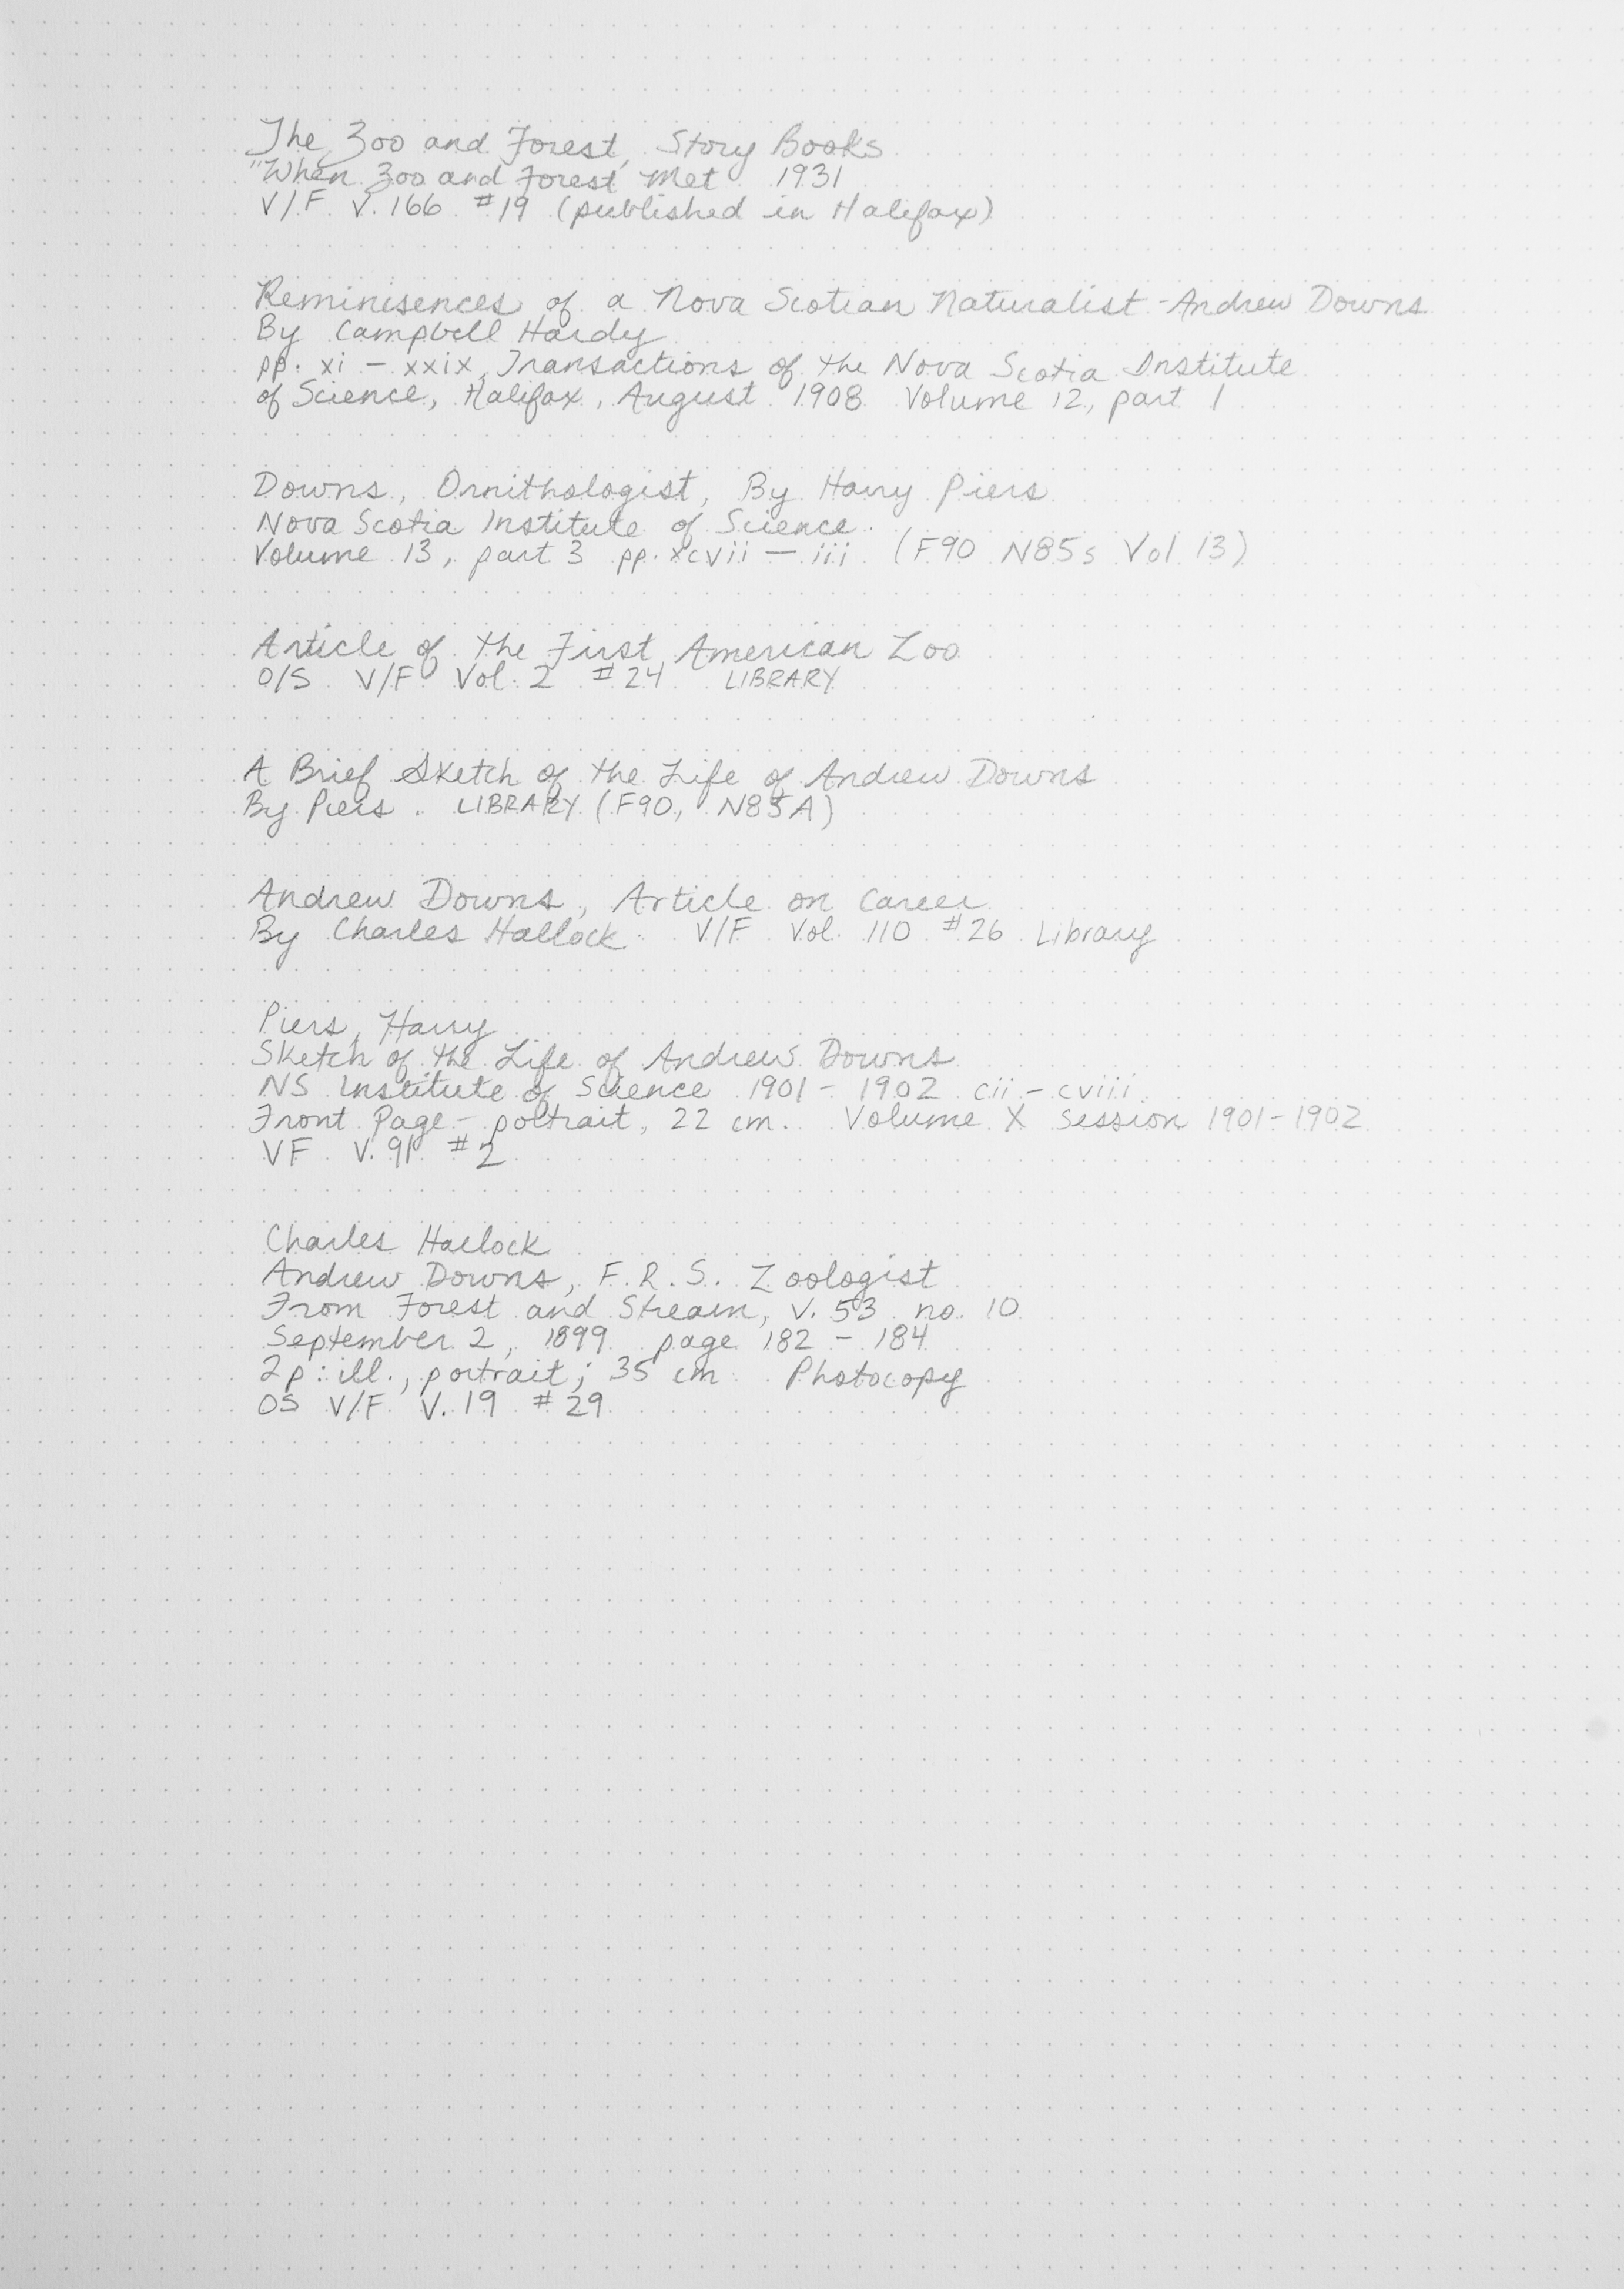 The Zoo and Forest, Story Books
"When Zoo and Forest Met" 1931
V/F V. 166 #19 (published in Halifax)
Reminisences of a Nova Scotian Naturalist - Andrew Downs
By Campbell Hardy
pp. xi - xxix, Transactions of the Nova Scotia Institute
of Science, Halifax, August 1908 Volume 12, part 1
Downs, Ornithologist, By Harry Piers
Nova Scotia Institute of Science
Volume 13, part 3 pp. xcvii - iii (F90 N85s Vol 13)
Article of the First American Zoo
O/S V/F Vol. 2 #24 LIBRARY
A Brief Sketch of the Life of Andrew Downs
By Piers. LIBRARY (F90, N85A)
Andrew Downs, Article on Career
By Charles Hallock. V/F Vol. 110 #26 Library
Piers, Harry
Sketch of the Life of Andrew Downs
NS Institute of Science 1901 - 1902 cii - cviii
Front Page - poltrait, 22 cm. Volume X Session 1901-1902
VF V. 91 #2
Charles Hallock
Andrew Downs, F.R.S. Zoologist
From Forest and Stream, V. 53 no. 10
September 2, 1899 page 182 - 184
2p: ill., portrait; 35 cm Photocopy
OS V/F V. 19 #29